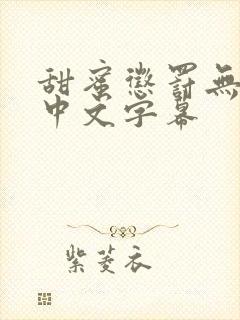 甜蜜懲罰無
中文字幕
紫菱衣